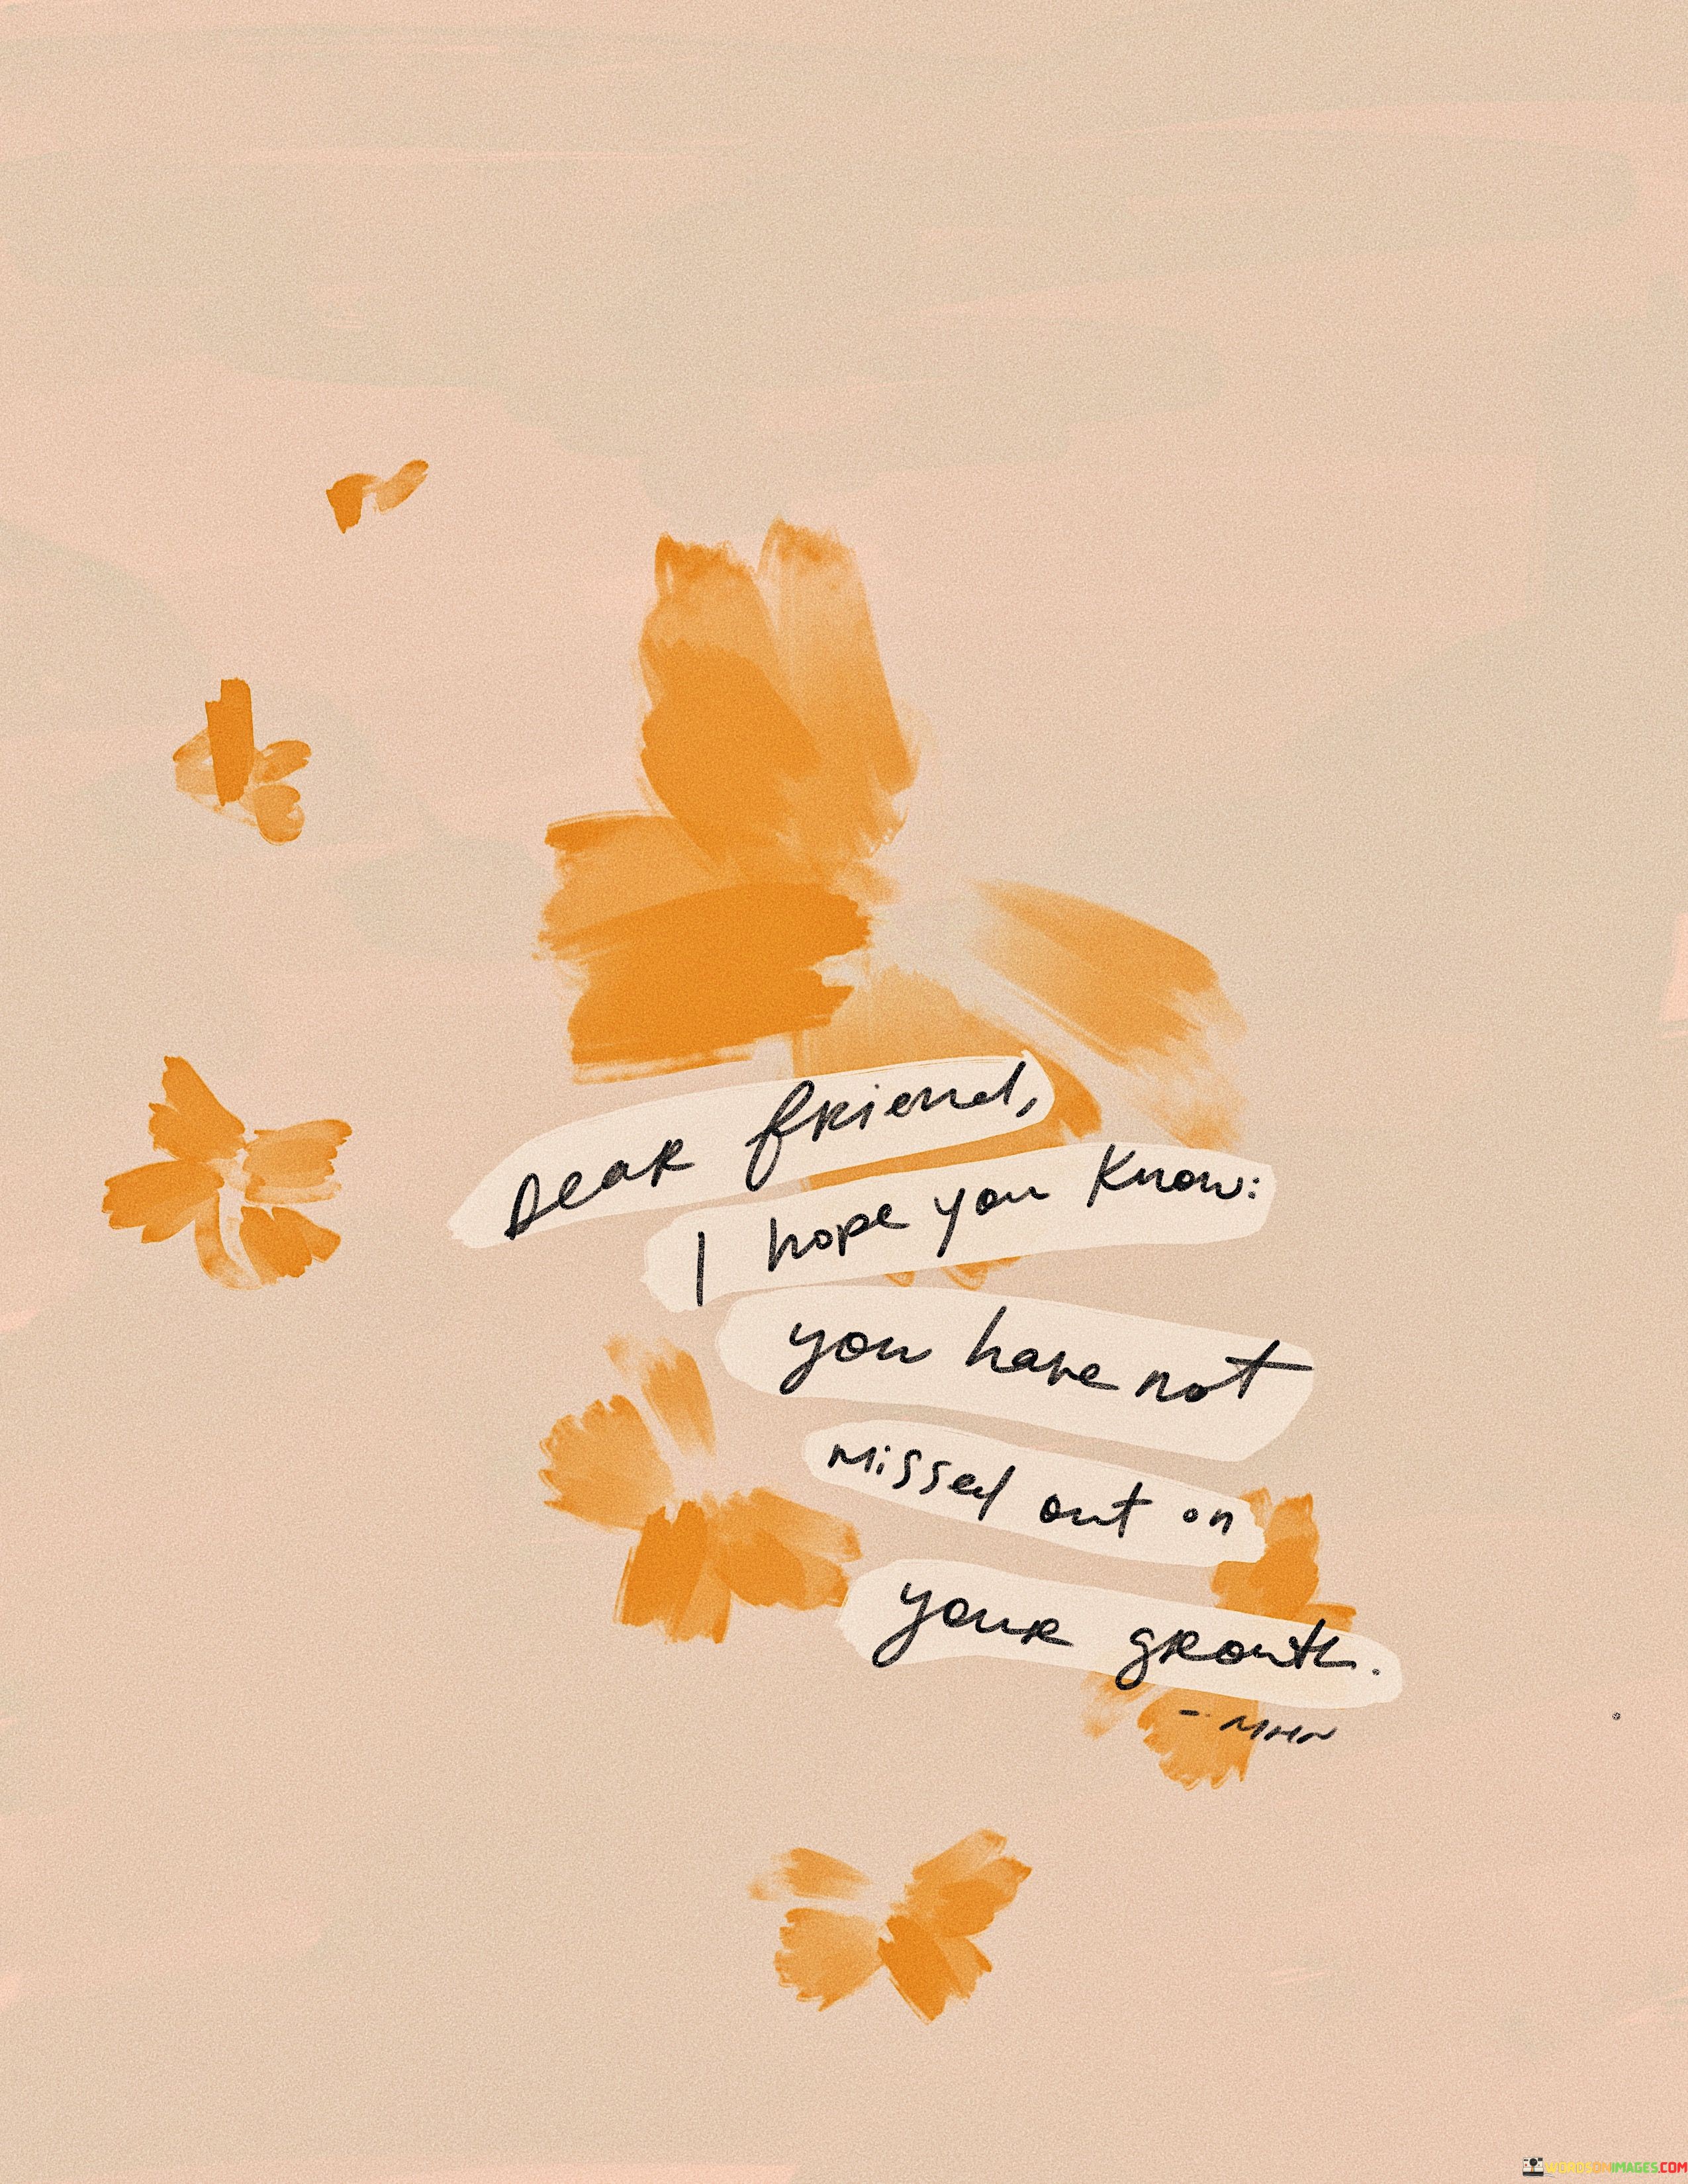 Dear friend,
I hope you know:
you have not
missed out on
your growth.
- MHN
WORDSONIMAGES.COM